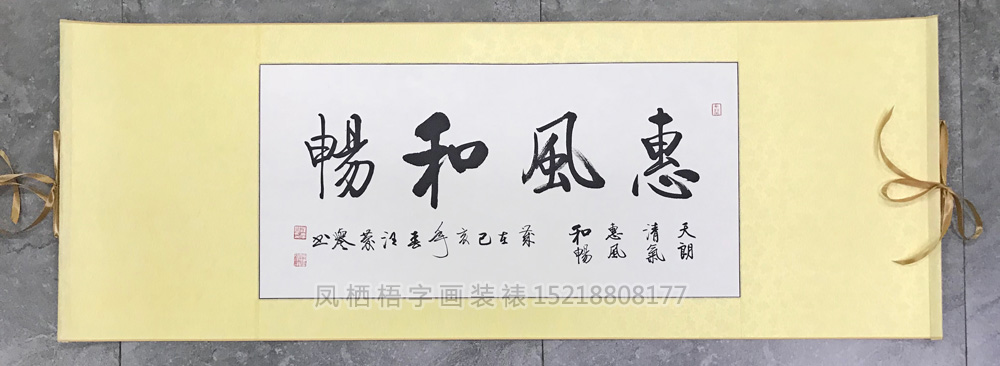 惠風和暢
天朗
清氣
惠風
和暢
歲在己亥年春
凤栖梧字画装裱15218808177